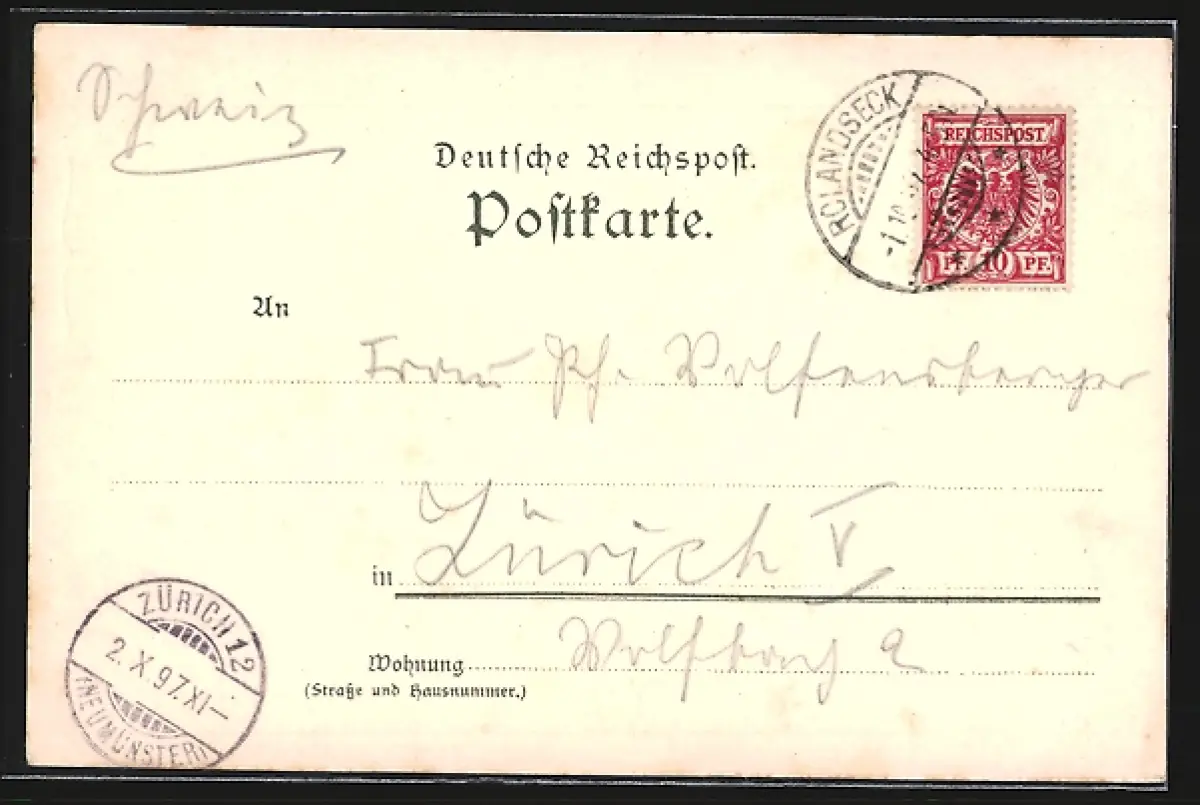 Schweiz
Deutsche Reichspost.
Postkarte.
ROLANDSECK
REICHSPOST
PF. 10 PF.
An
Frau Wolfensberger
in Zürich V
Wohnung
(Straße und Hausnummer.)
ZÜRICH 12
2.X.97.XI–
(NEUMÜNSTER)